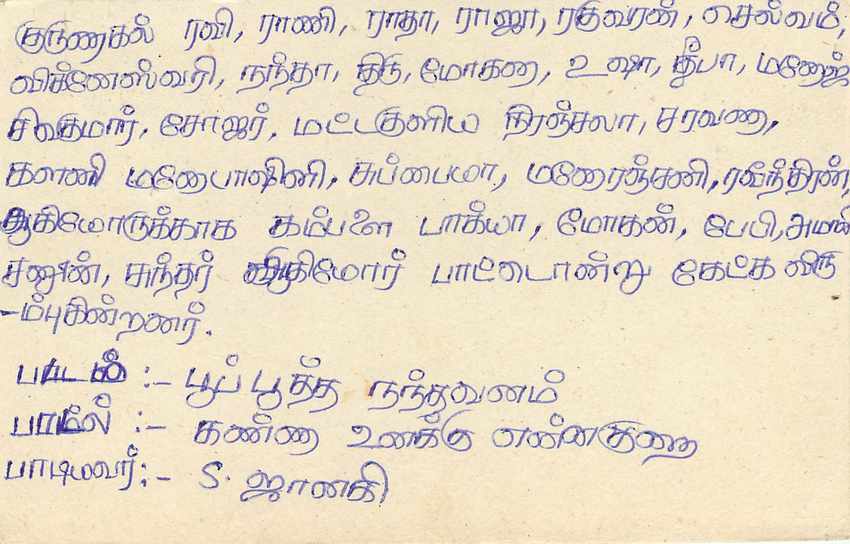 குருணாகல் ரவி, ராணி, ராதா, ராஜூ, ரகுவரன், செல்வம்,
விக்னேஸ்வரி, நந்தா, திரு, மோகனா, உஷா, தீபா, மனோஜ்
சிவகுமார், சோஜர், மட்டகுளிய நிரஞ்சலா, சரவணா,
களணி மனோபாஷினி, சுப்பையா, மனோரஞ்சனி, ரவீந்திரன்,
ஆகியோருக்காக கம்பளை பாக்யா, மோகன், பேபி, அமலி
சுந்தர் ஆகியோர் பாட்டொன்று கேட்க விரு
-ம்புகின்றனர்.
படம் :- பூப் பூத்த நந்தவனம்
பாடல் :- கண்ணா உனக்கு என்னகுணா
பாடியவர்:- S. ஜானகி